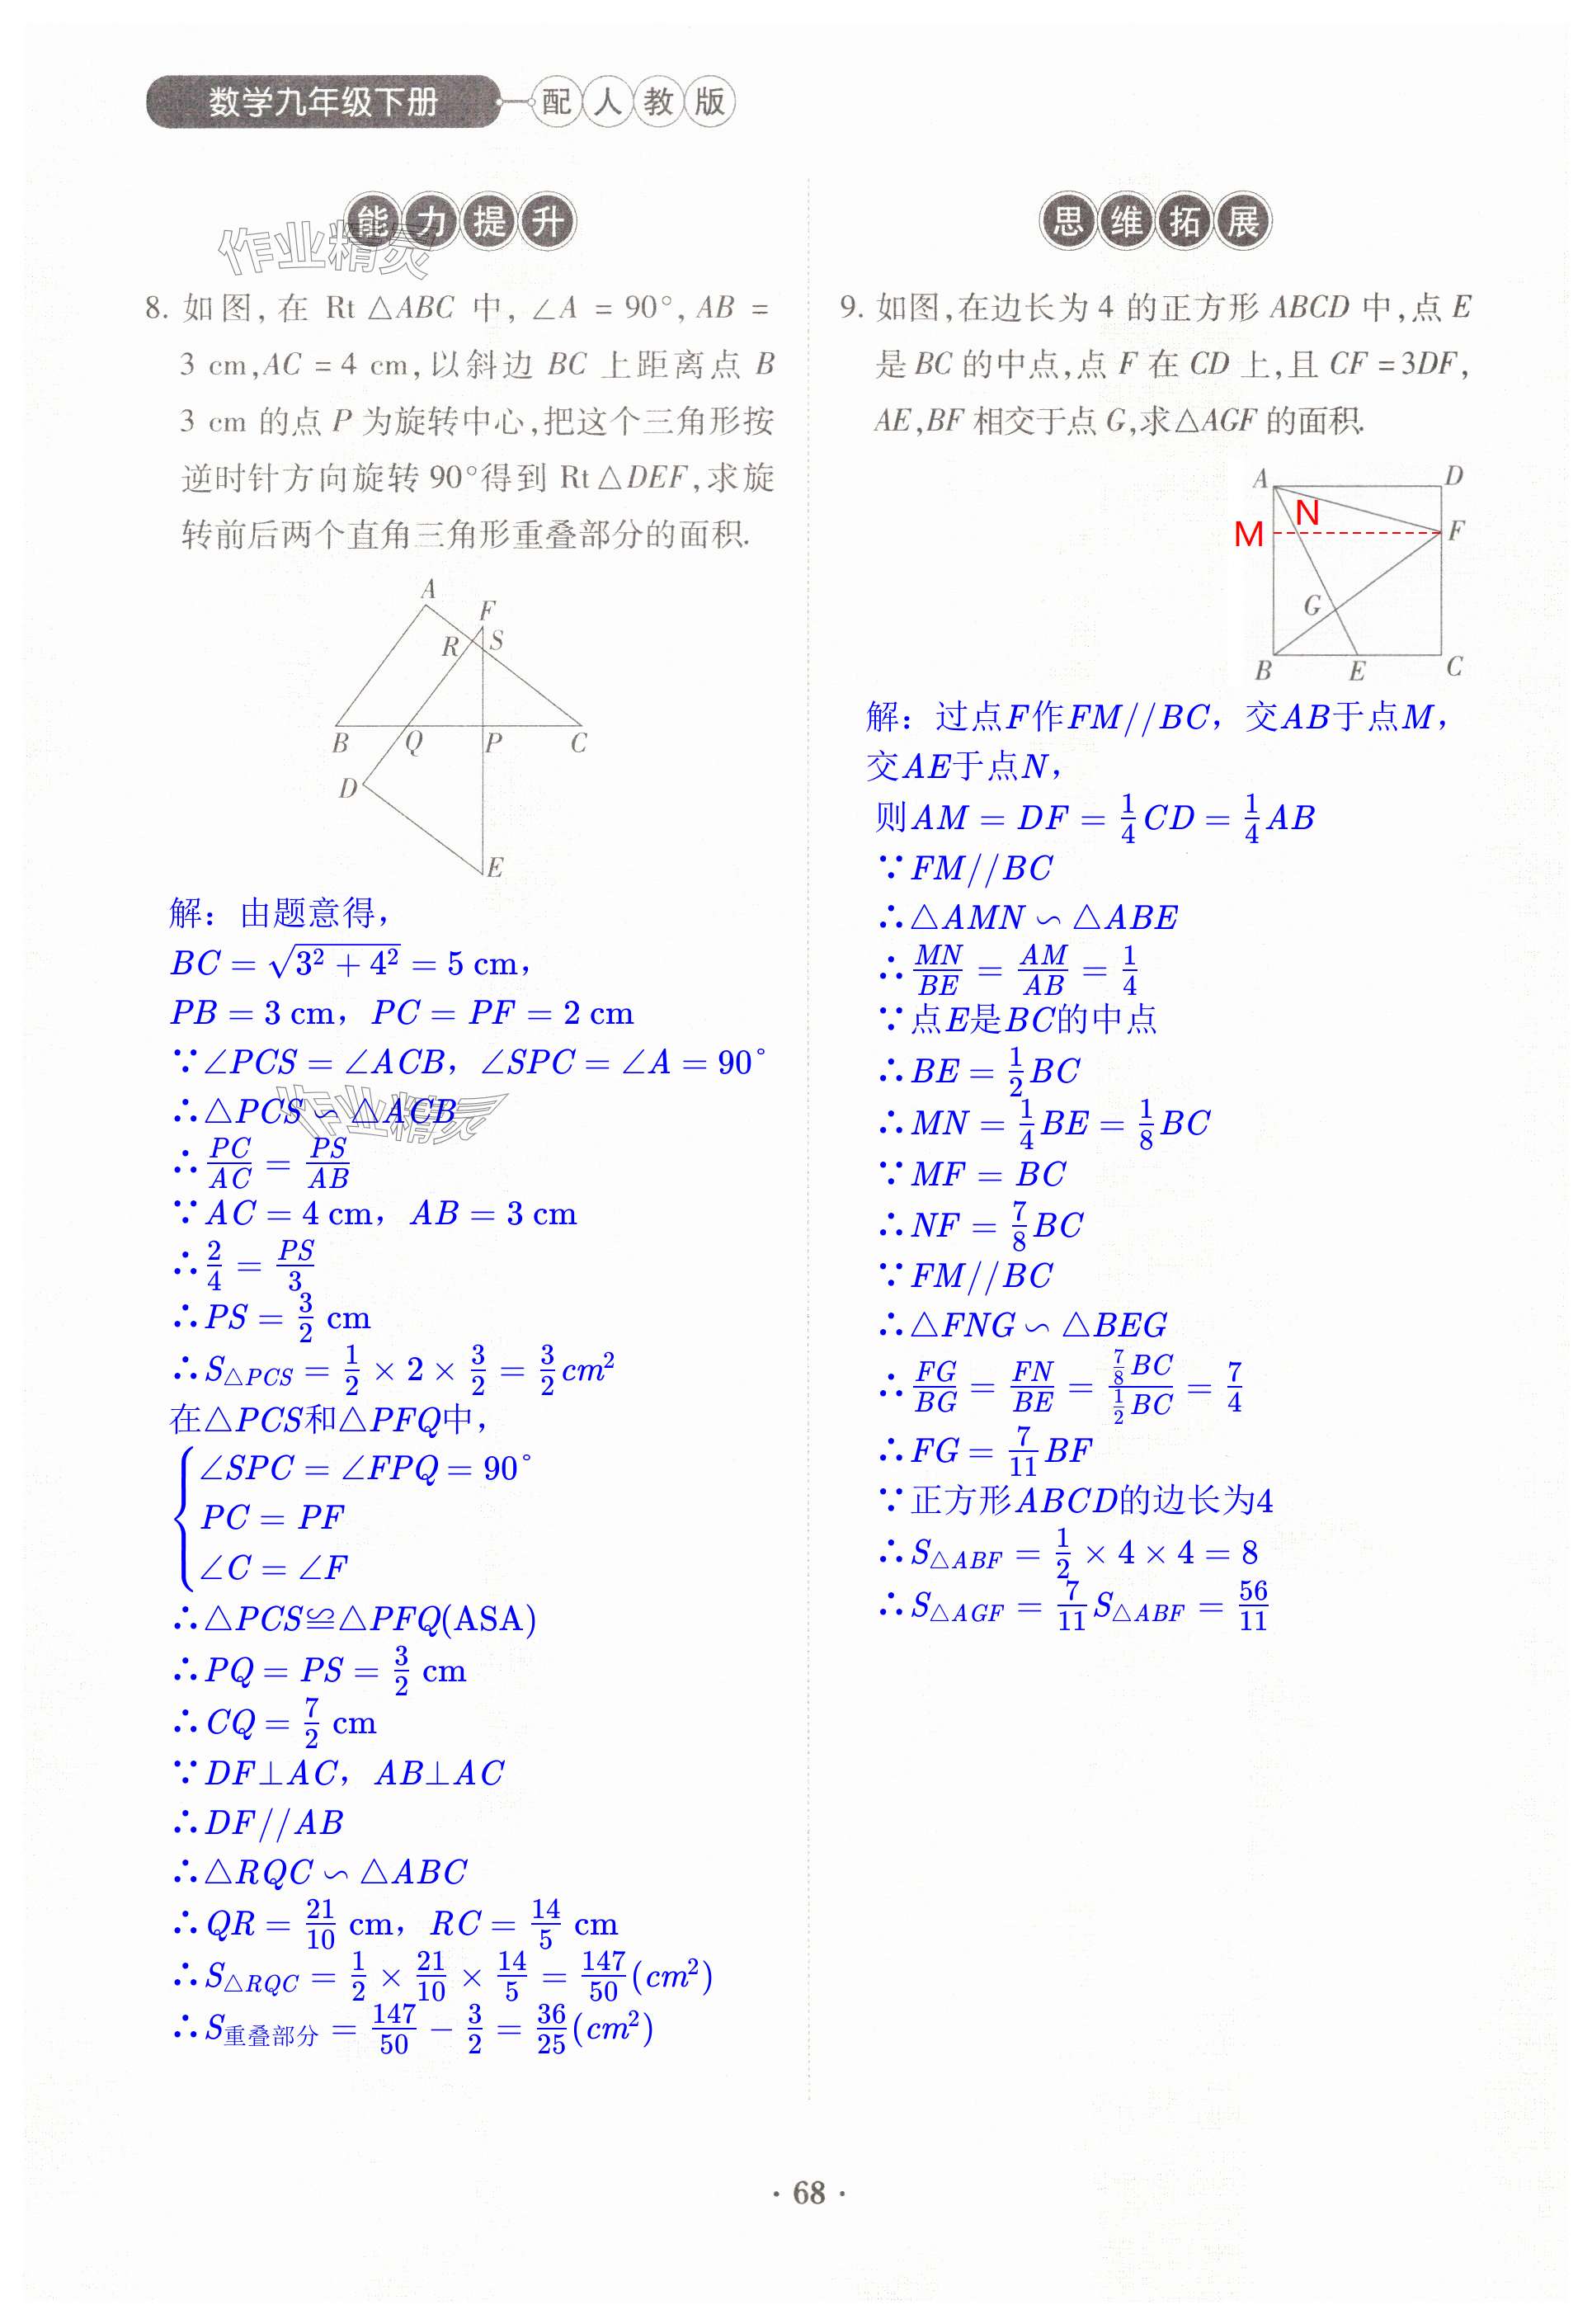 数学九年级下册 配人教版
能力提升
8. 如图,在 Rt△ABC 中,∠A = 90°,AB =
3 cm,AC = 4 cm,以斜边 BC 上距离点 B
3 cm 的点 P 为旋转中心,把这个三角形按
逆时针方向旋转 90°得到 Rt△DEF,求旋
转前后两个直角三角形重叠部分的面积.
A
F
R S
B Q P C
D
E
解：由题意得，
BC = √(3² + 4²) = 5 cm，
PB = 3 cm，PC = PF = 2 cm
∵∠PCS = ∠ACB，∠SPC = ∠A = 90°
∴△PCS∽△ACB
∴PC/AC = PS/AB
∵AC = 4 cm，AB = 3 cm
∴2/4 = PS/3
∴PS = 3/2 cm
∴S△PCS = 1/2 × 2 × 3/2 = 3/2 cm²
在△PCS和△PFQ中，
{∠SPC = ∠FPQ = 90°
PC = PF
∠C = ∠F
∴△PCS≌△PFQ(ASA)
∴PQ = PS = 3/2 cm
∴CQ = 7/2 cm
∵DF⊥AC，AB⊥AC
∴DF//AB
∴△RQC∽△ABC
∴QR = 21/10 cm，RC = 14/5 cm
∴S△RQC = 1/2 × 21/10 × 14/5 = 147/50(cm²)
∴S重叠部分 = 147/50 − 3/2 = 36/25(cm²)
思维拓展
9. 如图,在边长为 4 的正方形 ABCD 中,点 E
是 BC 的中点,点 F 在 CD 上,且 CF = 3DF,
AE,BF 相交于点 G,求△AGF 的面积.
A D
N
M F
G
B E C
解：过点F作FM//BC，交AB于点M，
交AE于点N，
则AM = DF = 1/4 CD = 1/4 AB
∵FM//BC
∴△AMN∽△ABE
∴MN/BE = AM/AB = 1/4
∵点E是BC的中点
∴BE = 1/2 BC
∴MN = 1/4 BE = 1/8 BC
∵MF = BC
∴NF = 7/8 BC
∵FM//BC
∴△FNG∽△BEG
∴FG/BG = FN/BE = (7/8 BC)/(1/2 BC) = 7/4
∴FG = 7/11 BF
∵正方形ABCD的边长为4
∴S△ABF = 1/2 × 4 × 4 = 8
∴S△AGF = 7/11 S△ABF = 56/11
作业精灵
作业精灵
· 68 ·